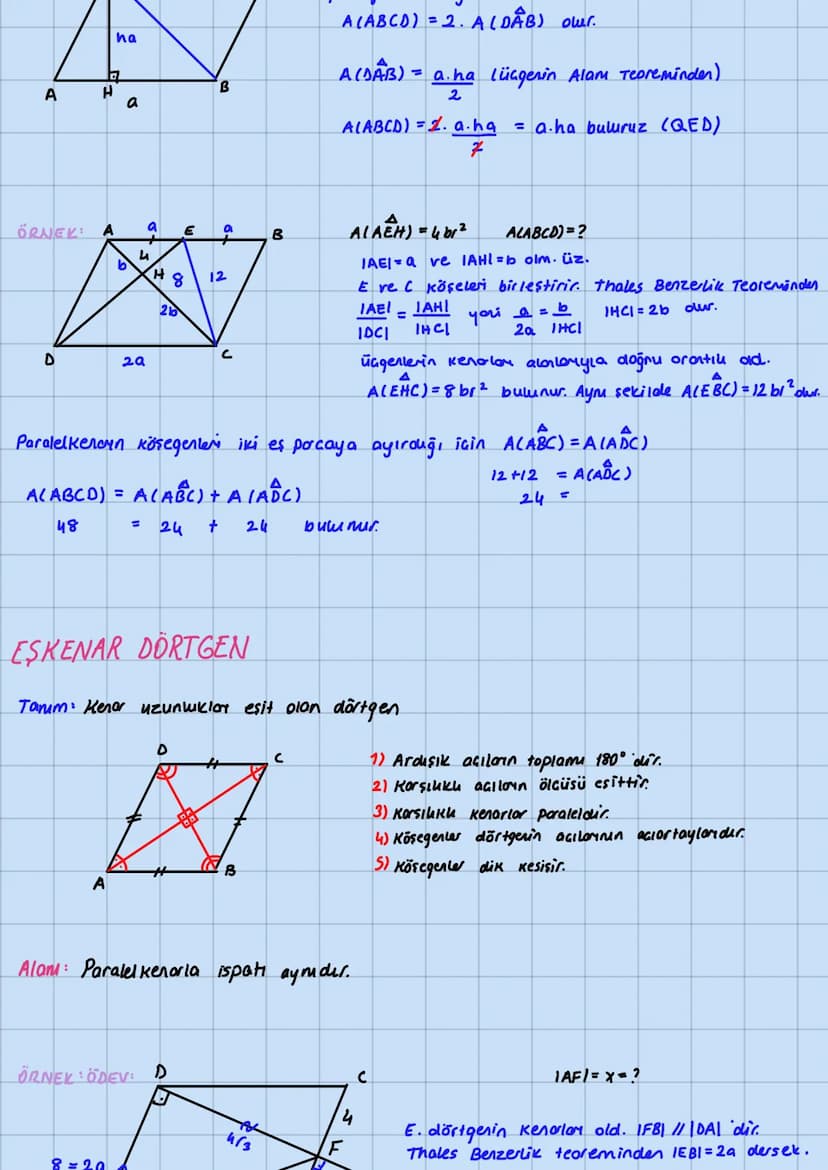 A(ABCD) = 2. A(DAB) olur.
ha
A H a B
A(DAB) = a.ha/2 (üçgenin Alanı Teoreminden)
A(ABCD) = 2. a.ha/2 = a.ha buluruz (QED)
ÖRNEK: A a E a B
A(AEH) = 4 br² A(ABCD) = ?
b 4 H 8 12
2b
D 2a C
|AE|=a ve |AH|=b olm. üz.
E ve C köşeleri birleştirir. Thales Benzerlik Teoreminden
|AE|/|DC| = |AH|/|HC| yani a/2a = b/|HC| |HC| = 2b olur.
üçgenlerin kenarları alanlarıyla doğru orantılı old.
A(EHC) = 8 br² bulunur. Aynı şekilde A(EBC) = 12 br² olur.
Paralelkenarın köşegenleri iki eş parçaya ayırdığı için A(ABC) = A(ADC)
12+12 = A(ADC)
24 =
A(ABCD) = A(ABC) + A(ADC)
48 = 24 + 24 bulunur.
EŞKENAR DÖRTGEN
Tanım: Kenar uzunlukları eşit olan dörtgen
D C
A B
1) Ardışık açıların toplamı 180° 'dir.
2) Karşılıklı açıların ölçüsü eşittir.
3) Karşılıklı kenarlar paraleldir.
4) Köşegenler dörtgenin açılarının açıortaylarıdır.
5) Köşegenler dik kesişir.
Alanı: Paralelkenarla ispatı aynıdır.
ÖRNEK: ÖDEV: D C
|AF| = x = ?
4
4√3
F
8 = 2a
E. dörtgenin kenarları old. |FB| // |DA| 'dir.
Thales Benzerlik teoreminden |EB| = 2a dersek.